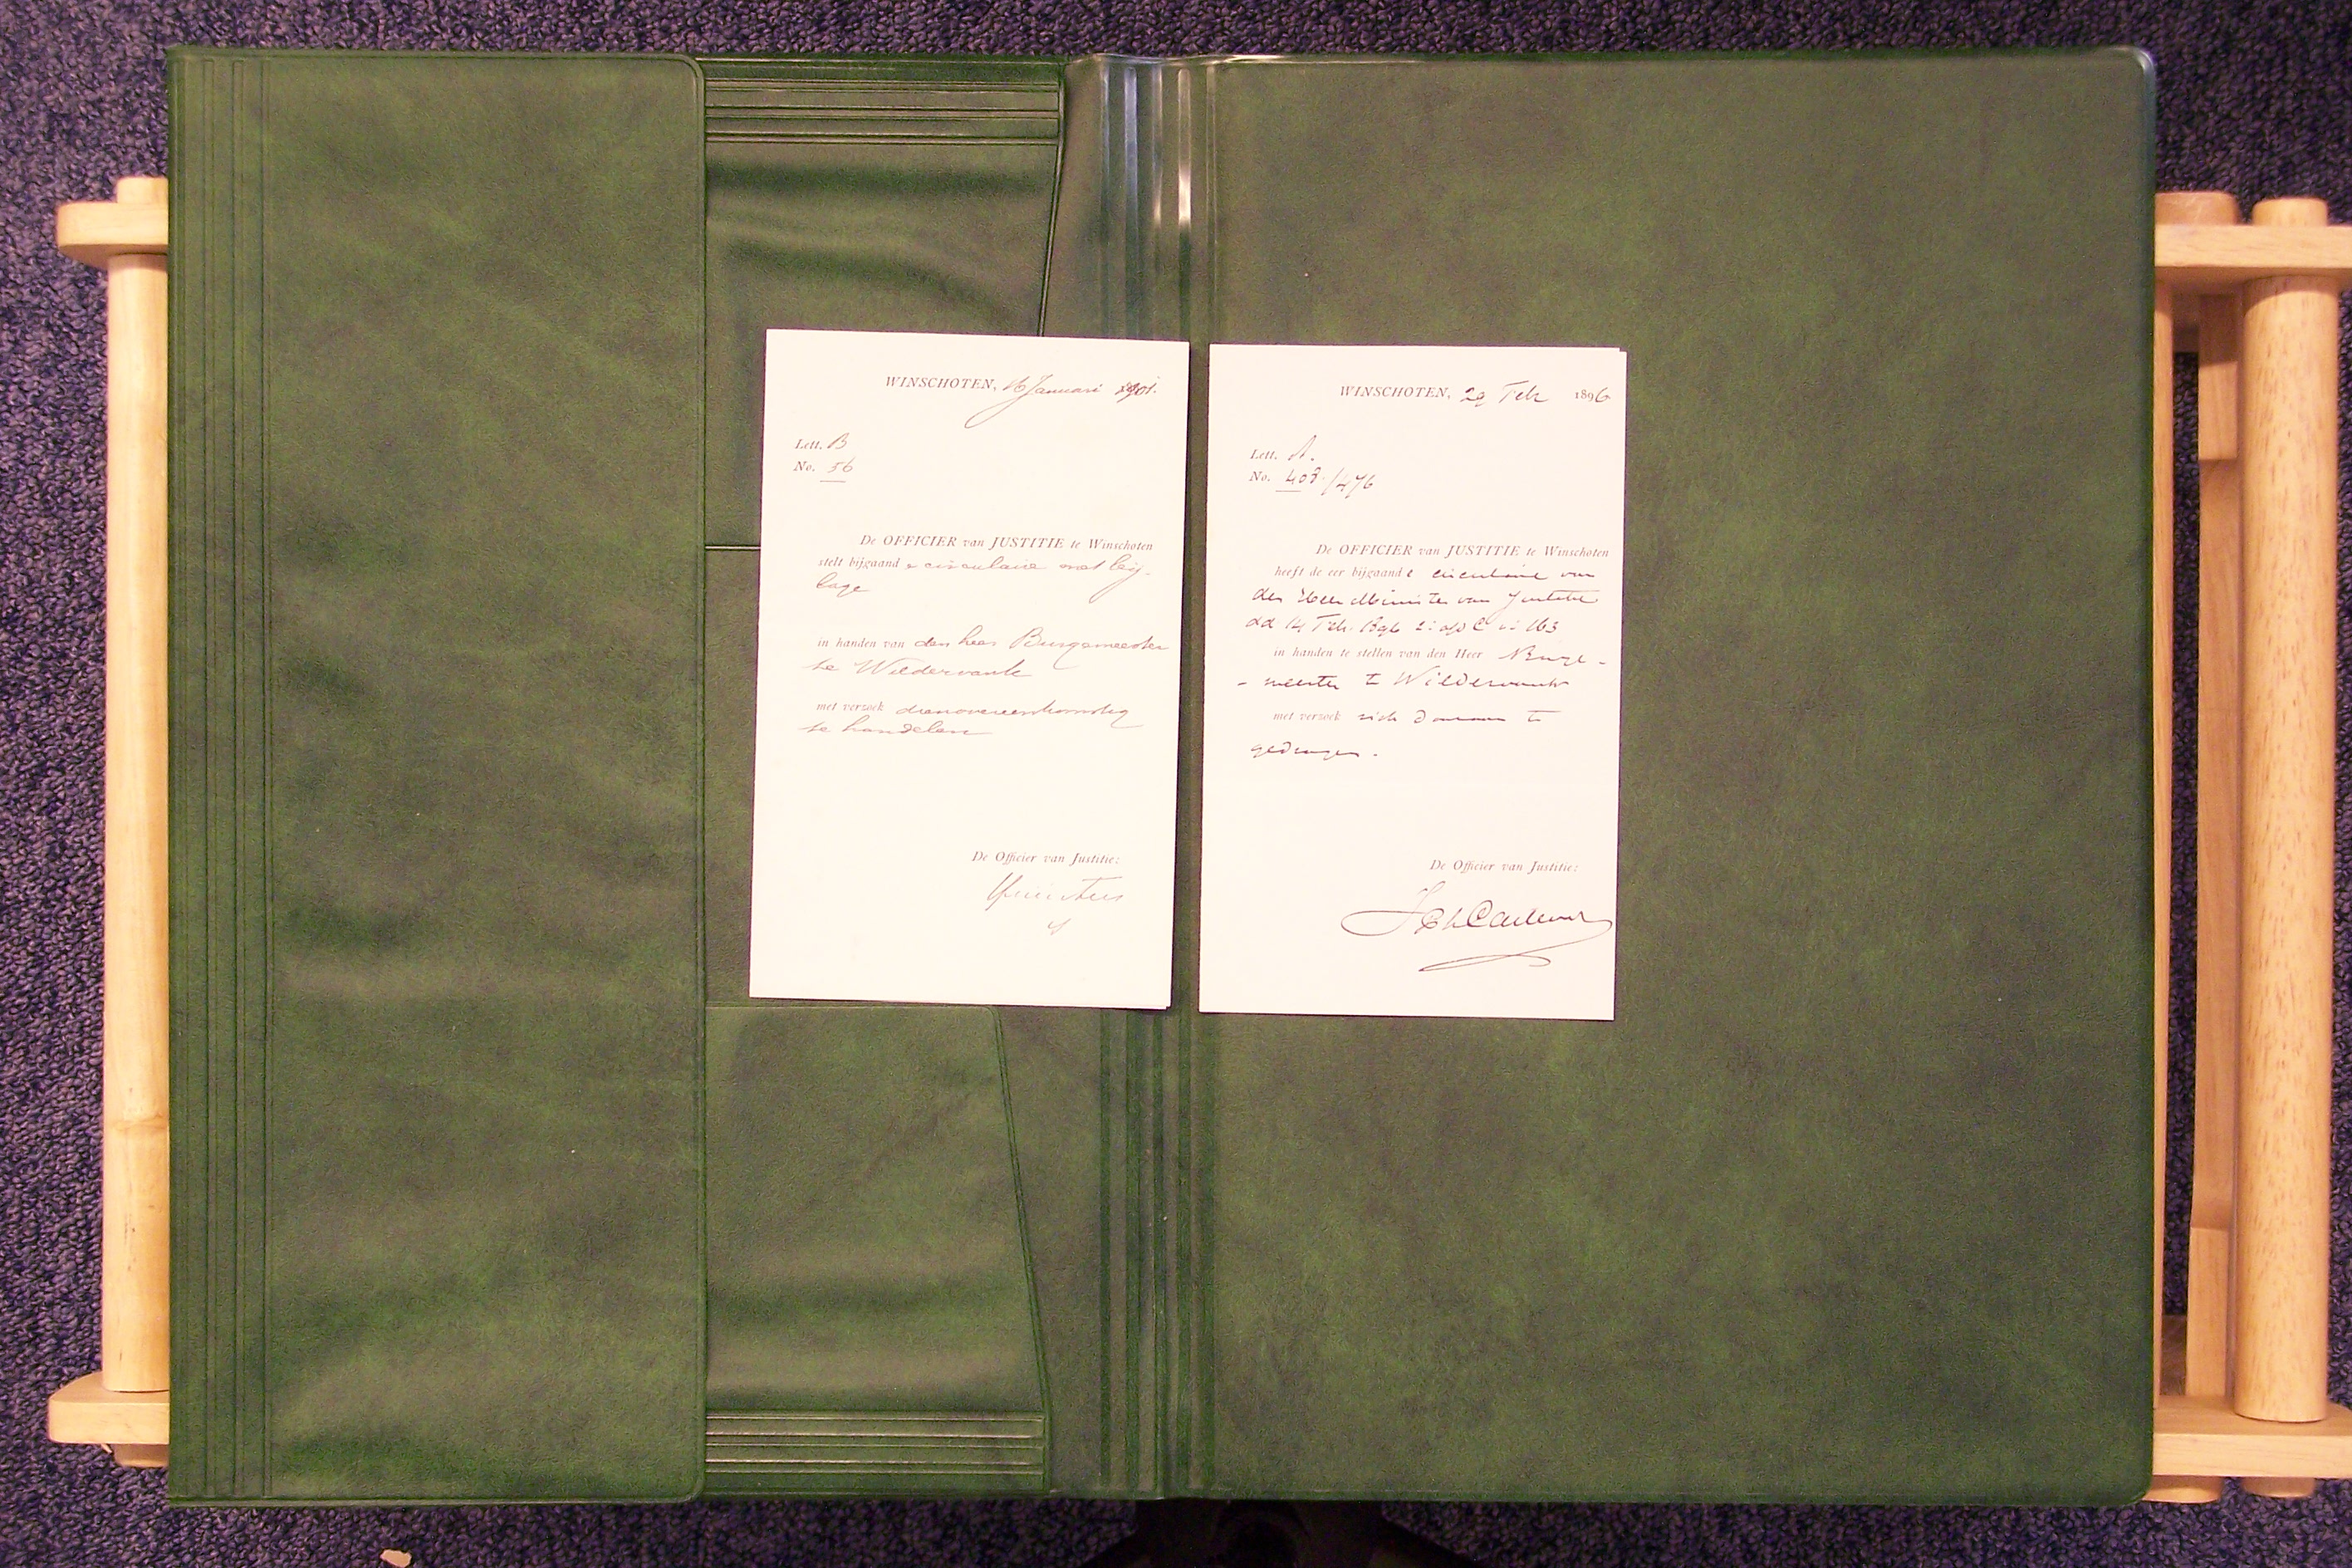 WINSCHOTEN, 16 Januari 1901.
Lett. B
No. 56
De OFFICIER van JUSTITIE te Winschoten
stelt bijgaand e circulaire met bij-
lage
in handen van den heer Burgemeester
te Wildervank
met verzoek dienovereenkomstig
te handelen
De Officier van Justitie:
WINSCHOTEN, 29 Feb 1896
Lett. A.
No. 408/476
De OFFICIER van JUSTITIE te Winschoten
heeft de eer bijgaand e circulaire van
den Heer Minister van Justitie
dd 14 Feb. 1896 2e afd C no 163
in handen te stellen van den Heer Burge-
- meester te Wildervank
met verzoek zich daaraan te
gedragen.
De Officier van Justitie: